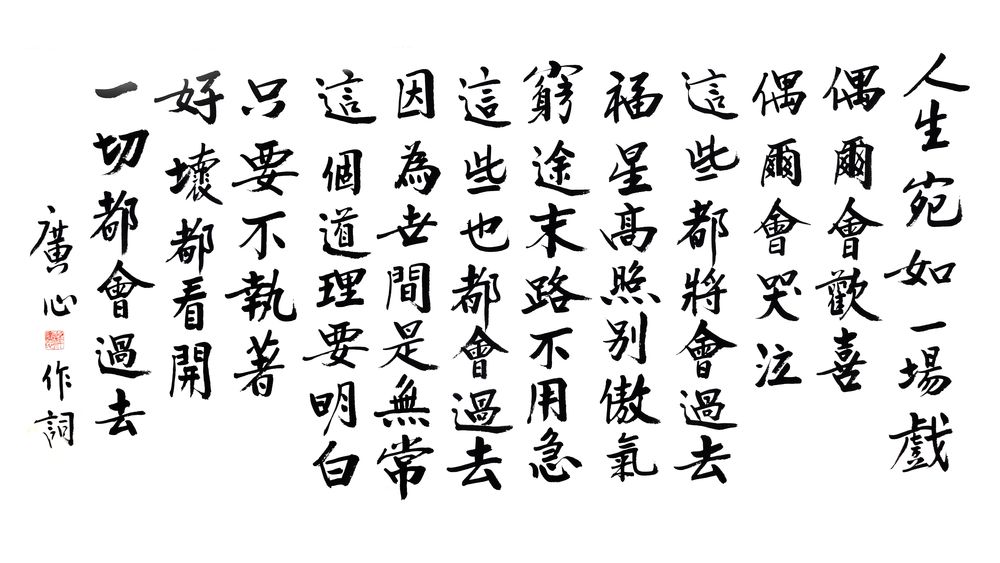 人生宛如一場戲
偶爾會歡喜
偶爾會哭泣
這些都將會過去
福星高照别傲氣
窮途末路不用急
這些也都會過去
因為世間是無常
這個道理要明白
只要不執著
好壞都看開
一切都會過去
廣心作詞